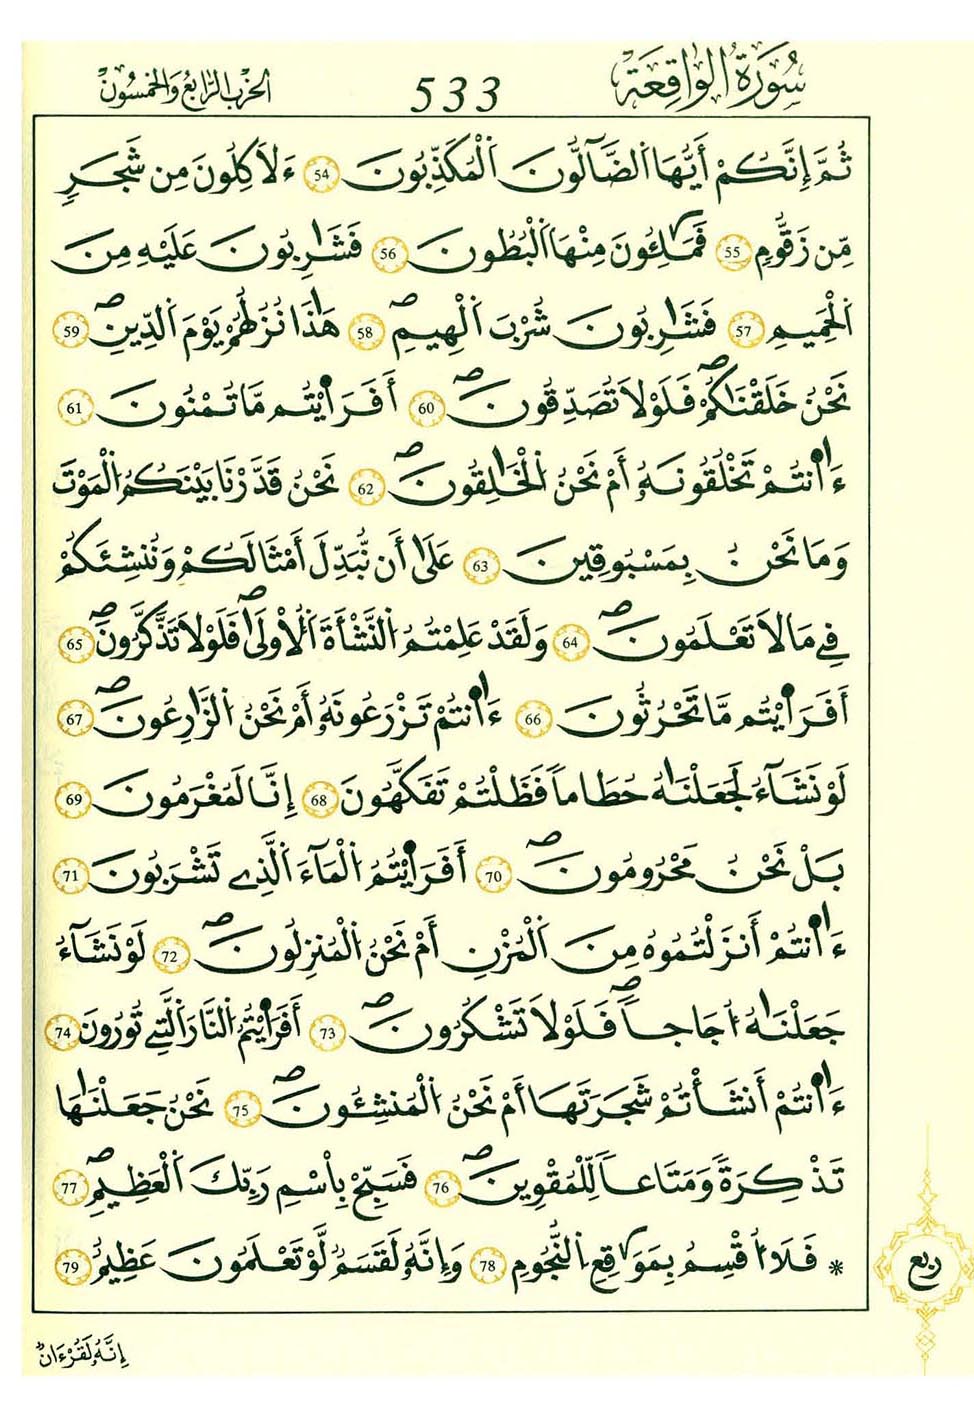 سُورَةُ الوَاقِعَة
533
الحزب الرابع والخمسون
ثُمَّ إِنَّكُمْ أَيُّهَا اَ۬لضَّآلُّونَ اَ۬لْمُكَذِّبُونَ 54 ءَلَاكِلُونَ مِن شَجَرٖ
مِّن زَقُّومٖ 55 فَمَالِـُٔونَ مِنْهَا اَ۬لْبُطُونَ 56 فَشَٰرِبُونَ عَلَيْهِ مِنَ
اَ۬لْحَمِيمِ 57 فَشَٰرِبُونَ شُرْبَ اَ۬لْهِيمِۖ 58 هَٰذَا نُزُلُهُمْ يَوْمَ اَ۬لدِّينِۖ 59
نَحْنُ خَلَقْنَٰكُمْۖ فَلَوْلَا تُصَدِّقُونَۖ 60 أَفَرَٰٓيْتُم مَّا تُمْنُونَ 61
ءَآنتُمْ تَخْلُقُونَهُۥٓ أَمْ نَحْنُ اُ۬لْخَٰلِقُونَۖ 62 نَحْنُ قَدَّرْنَا بَيْنَكُمُ اُ۬لْمَوْتَ
وَمَا نَحْنُ بِمَسْبُوقِينَ 63 عَلَىٰٓ أَن نُّبَدِّلَ أَمْثَٰلَكُمْ وَنُنشِئَكُمْ
فِے مَا لَا تَعْلَمُونَۖ 64 وَلَقَدْ عَلِمْتُمُ اُ۬لنَّشْأَةَ اَ۬لُاولَىٰۖ فَلَوْلَا تَذَّكَّرُونَۖ 65
أَفَرَٰٓيْتُم مَّا تَحْرُثُونَ 66 ءَآنتُمْ تَزْرَعُونَهُۥٓ أَمْ نَحْنُ اُ۬لزَّٰرِعُونَۖ 67
لَوْ نَشَآءُ لَجَعَلْنَٰهُ حُطَٰماٗ فَظَلْتُمْ تَفَكَّهُونَ 68 إِنَّا لَمُغْرَمُونَ 69
بَلْ نَحْنُ مَحْرُومُونَۖ 70 أَفَرَٰٓيْتُمُ اُ۬لْمَآءَ اَ۬لَّذِے تَشْرَبُونَ 71
ءَآنتُمْ أَنزَلْتُمُوهُ مِنَ اَ۬لْمُزْنِ أَمْ نَحْنُ اُ۬لْمُنزِلُونَۖ 72 لَوْ نَشَآءُ
جَعَلْنَٰهُ أُجَاجاٗۖ فَلَوْلَا تَشْكُرُونَۖ 73 أَفَرَٰٓيْتُمُ اُ۬لنَّارَ اَ۬لَّتِے تُورُونَ 74
ءَآنتُمْ أَنشَأْتُمْ شَجَرَتَهَآ أَمْ نَحْنُ اُ۬لْمُنشِـُٔونَۖ 75 نَحْنُ جَعَلْنَٰهَا
تَذْكِرَةٗ وَمَتَٰعاٗ لِّلْمُقْوِينَۖ 76 فَسَبِّحْ بِاسْمِ رَبِّكَ اَ۬لْعَظِيمِۖ 77
* فَلَآ أُقْسِمُ بِمَوَٰقِعِ اِ۬لنُّجُومِ 78 وَإِنَّهُۥ لَقَسَمٞ لَّوْ تَعْلَمُونَ عَظِيمٌ 79
ربع
إِنَّهُۥ لَقُرْءَانٞ